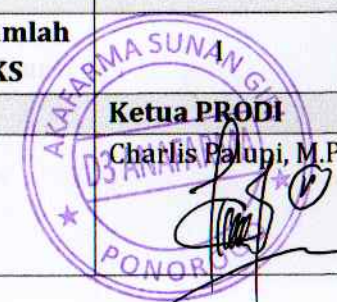 mlah
KS
Ketua PRODI
Charlis Palupi, M.P
AKAFARMA SUNAN GI
D3 ANAFARMA
PONOROGO